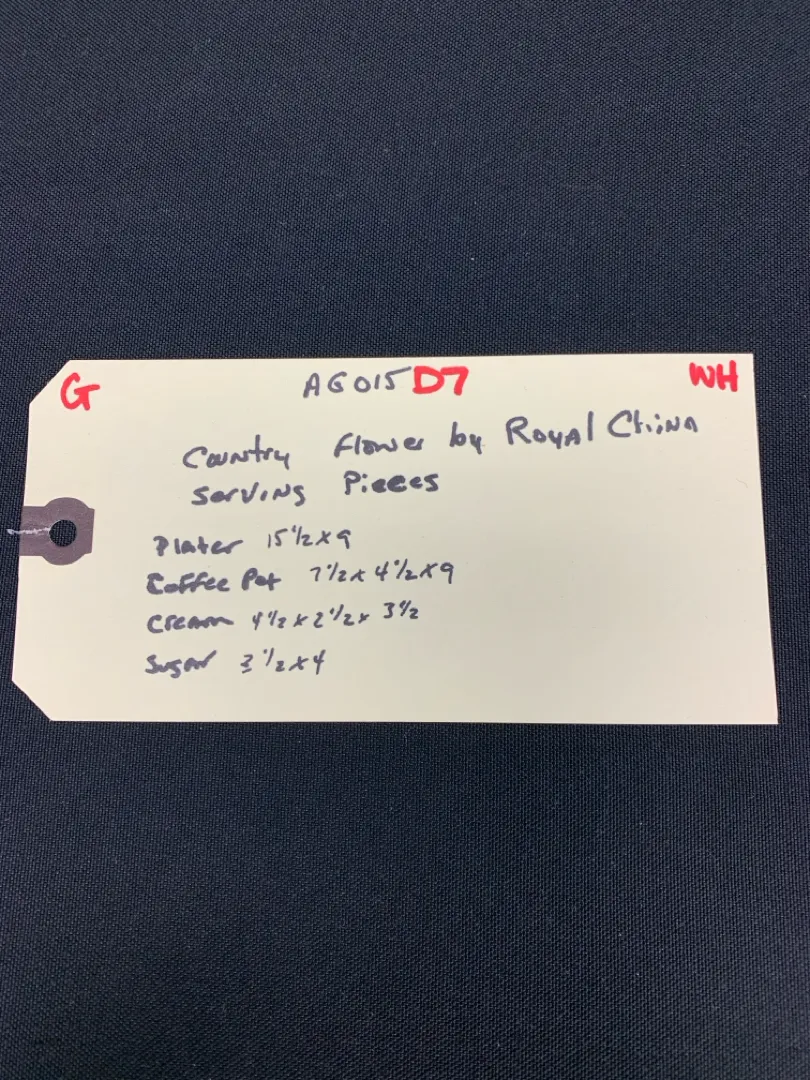 G AG015 D7 WH
Country Flower by Royal China
Serving Pieces
Plater 15 1/2 x 9
Coffee Pot 7 1/2 x 4 1/2 x 9
Cream 4 1/2 x 2 1/2 x 3 1/2
Sugar 3 1/2 x 4